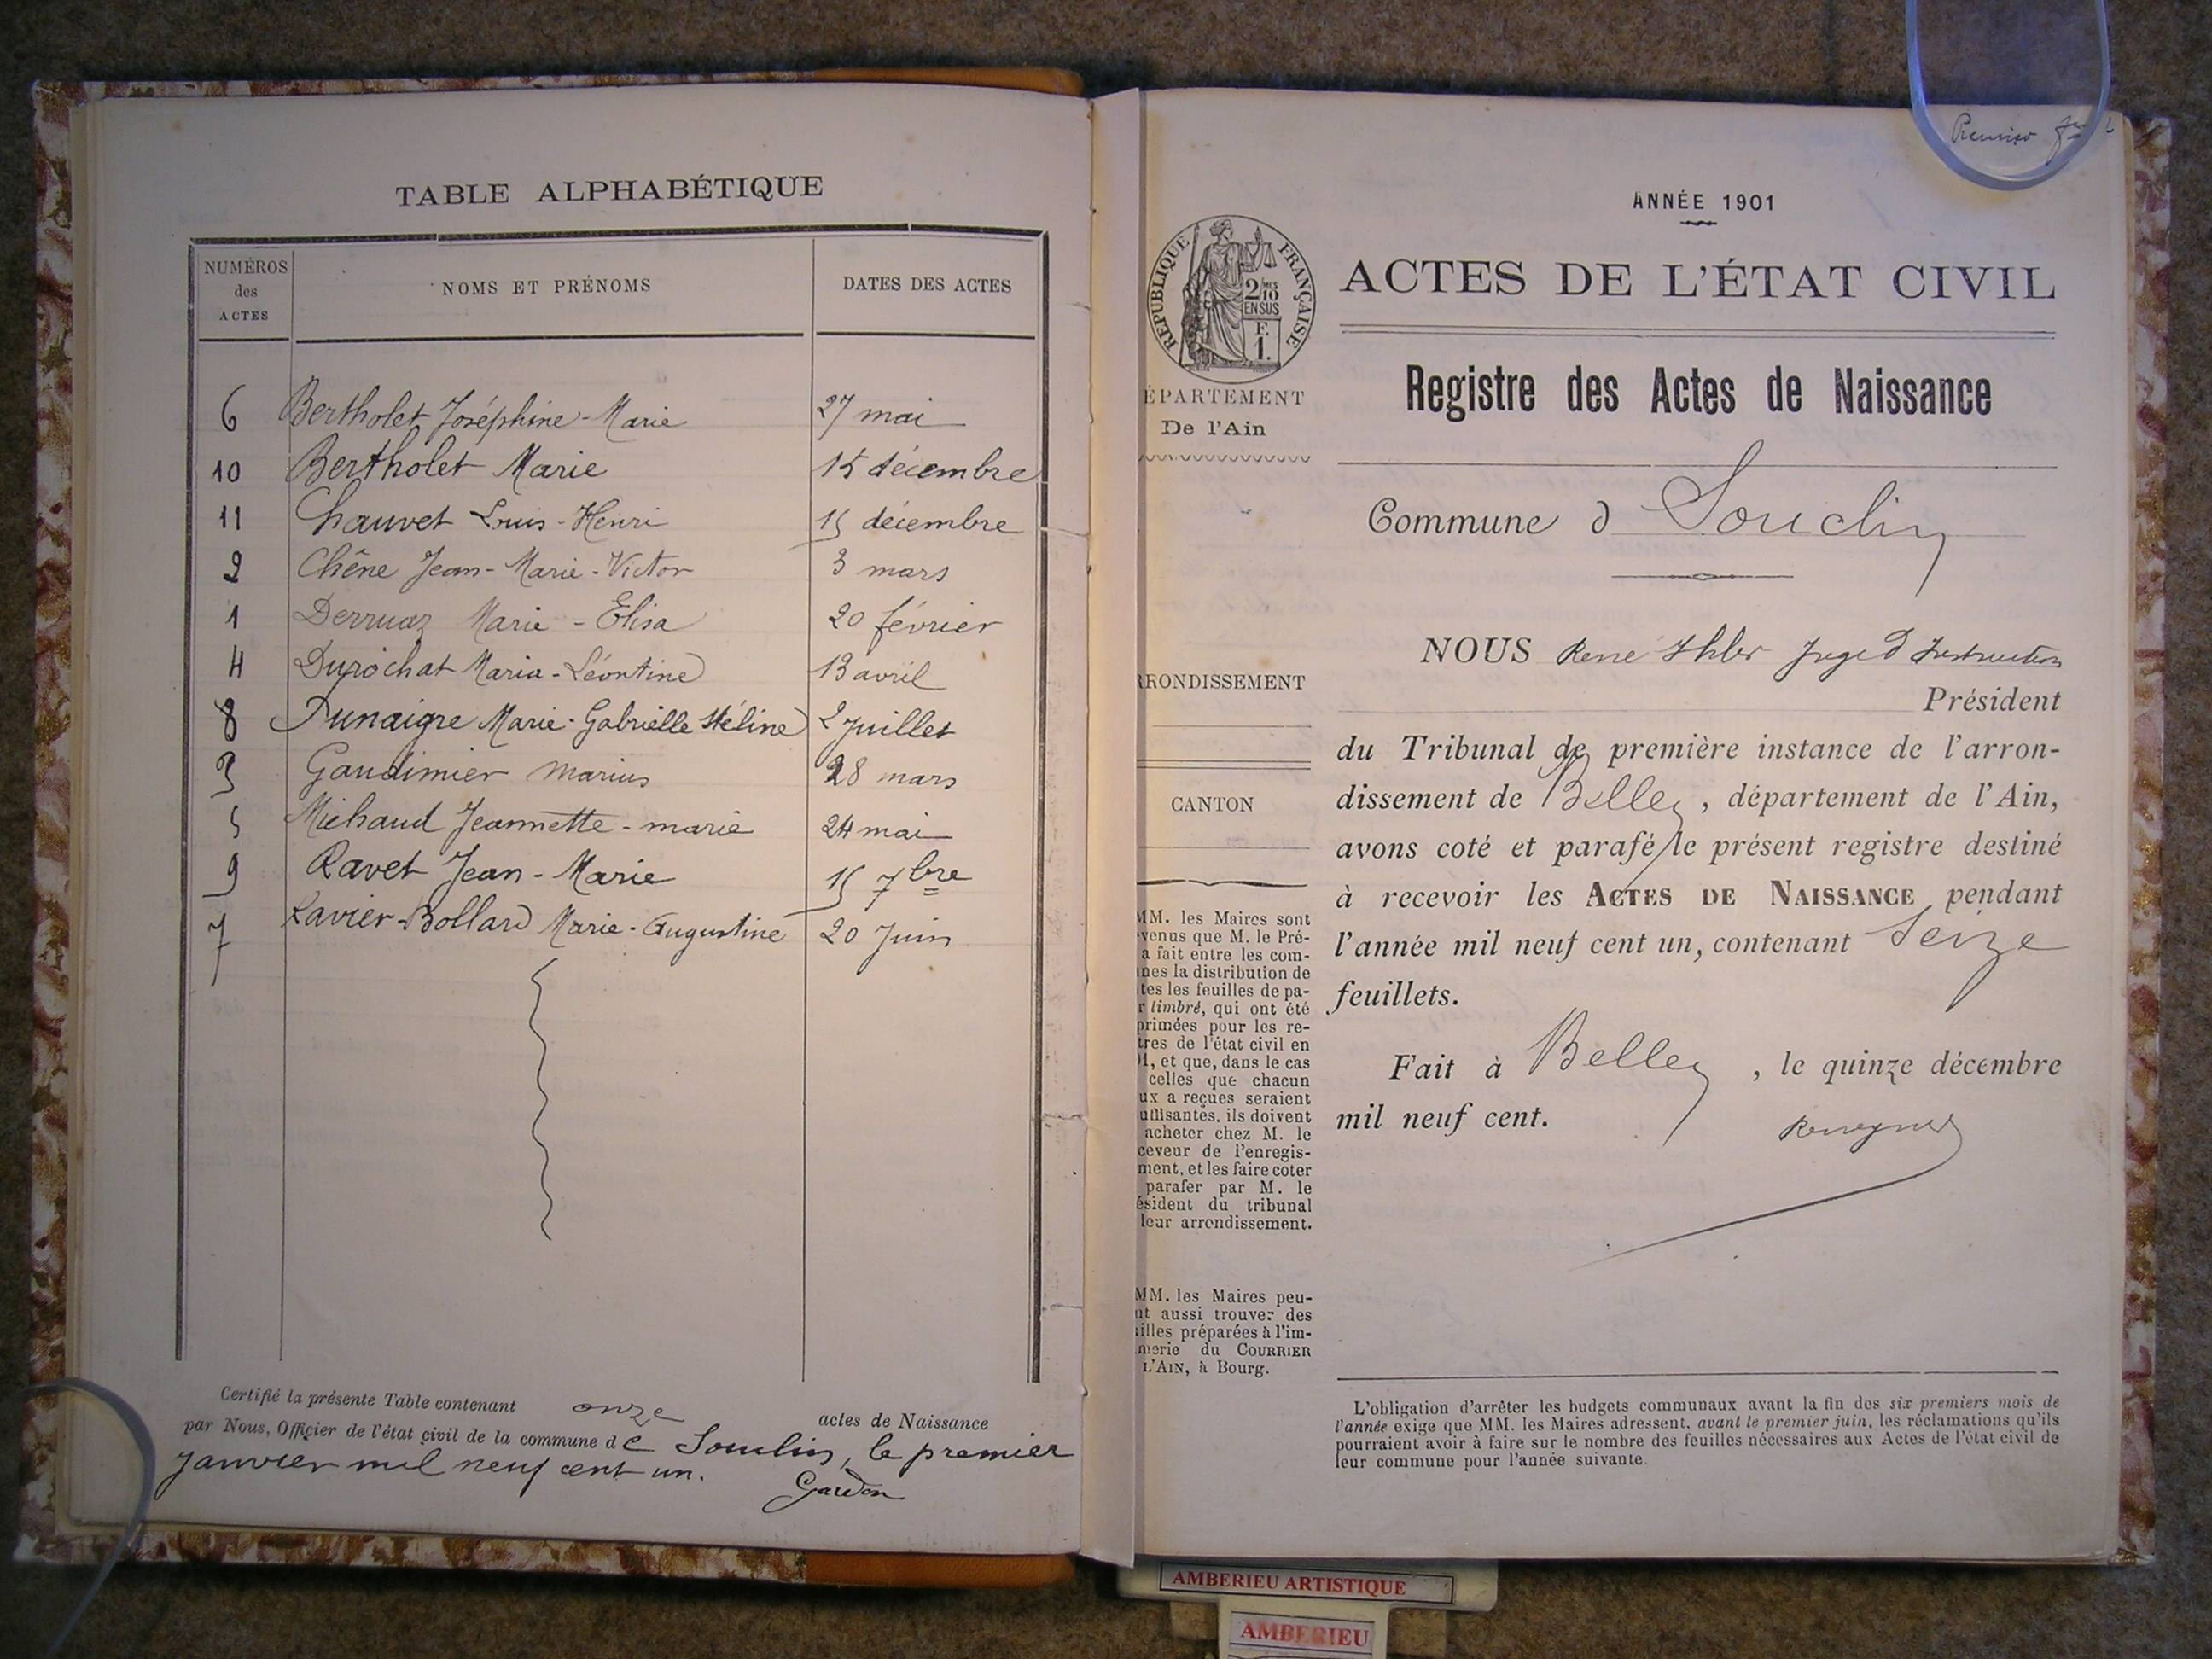 TABLE ALPHABÉTIQUE
NUMÉROS des ACTES NOMS ET PRÉNOMS DATES DES ACTES
6 Bertholet Joséphine-Marie 27 mai
10 Bertholet Marie 15 décembre
11 Chauvet Louis-Henri 15 décembre
2 Chêne Jean-Marie-Victor 3 mars
1 Derruaz Marie-Elisa 20 février
4 Maria-Léontine 13 avril
8 Dunaigre Marie-Gabrielle 2 Juillet
3 Gaudimier Marius 28 mars
5 Michaud Jeannette-marie 24 mai
9 Ravet Jean-Marie 15 7bre
7 Xavier-Bollard Marie-Augustine 20 Juin
Certifié la présente Table contenant onze actes de Naissance
par Nous, Officier de l'état civil de la commune de Souclin, le premier
Janvier mil neuf cent un.
Gardon
Premier
ANNÉE 1901
RÉPUBLIQUE FRANÇAISE
2/10 EN SUS
F. 1.
ACTES DE L'ÉTAT CIVIL
Registre des Actes de Naissance
ÉPARTEMENT
De l'Ain
Commune d Souclin
NOUS René Juge d'Instruction
Président
du Tribunal de première instance de l'arron-
dissement de Belley, département de l'Ain,
avons coté et parafé le présent registre destiné
à recevoir les ACTES DE NAISSANCE pendant
l'année mil neuf cent un, contenant Seize
feuillets.
Fait à Belley, le quinze décembre
mil neuf cent.
RRONDISSEMENT
CANTON
MM. les Maires sont
venus que M. le Pré-
a fait entre les com-
nes la distribution de
tes les feuilles de pa-
r timbré, qui ont été
primées pour les re-
tres de l'état civil en
1, et que, dans le cas
celles que chacun
ux a reçues seraient
uffisantes, ils doivent
acheter chez M. le
ceveur de l'enregis-
ment, et les faire coter
parafer par M. le
ésident du tribunal
leur arrondissement.
MM. les Maires peu-
nt aussi trouver des
illes préparées à l'im-
merie du COURRIER
L'AIN, à Bourg.
L'obligation d'arrêter les budgets communaux avant la fin des six premiers mois de
l'année exige que MM. les Maires adressent, avant le premier juin, les réclamations qu'ils
pourraient avoir à faire sur le nombre des feuilles nécessaires aux Actes de l'état civil de
leur commune pour l'année suivante.
AMBERIEU ARTISTIQUE
AMBERIEU